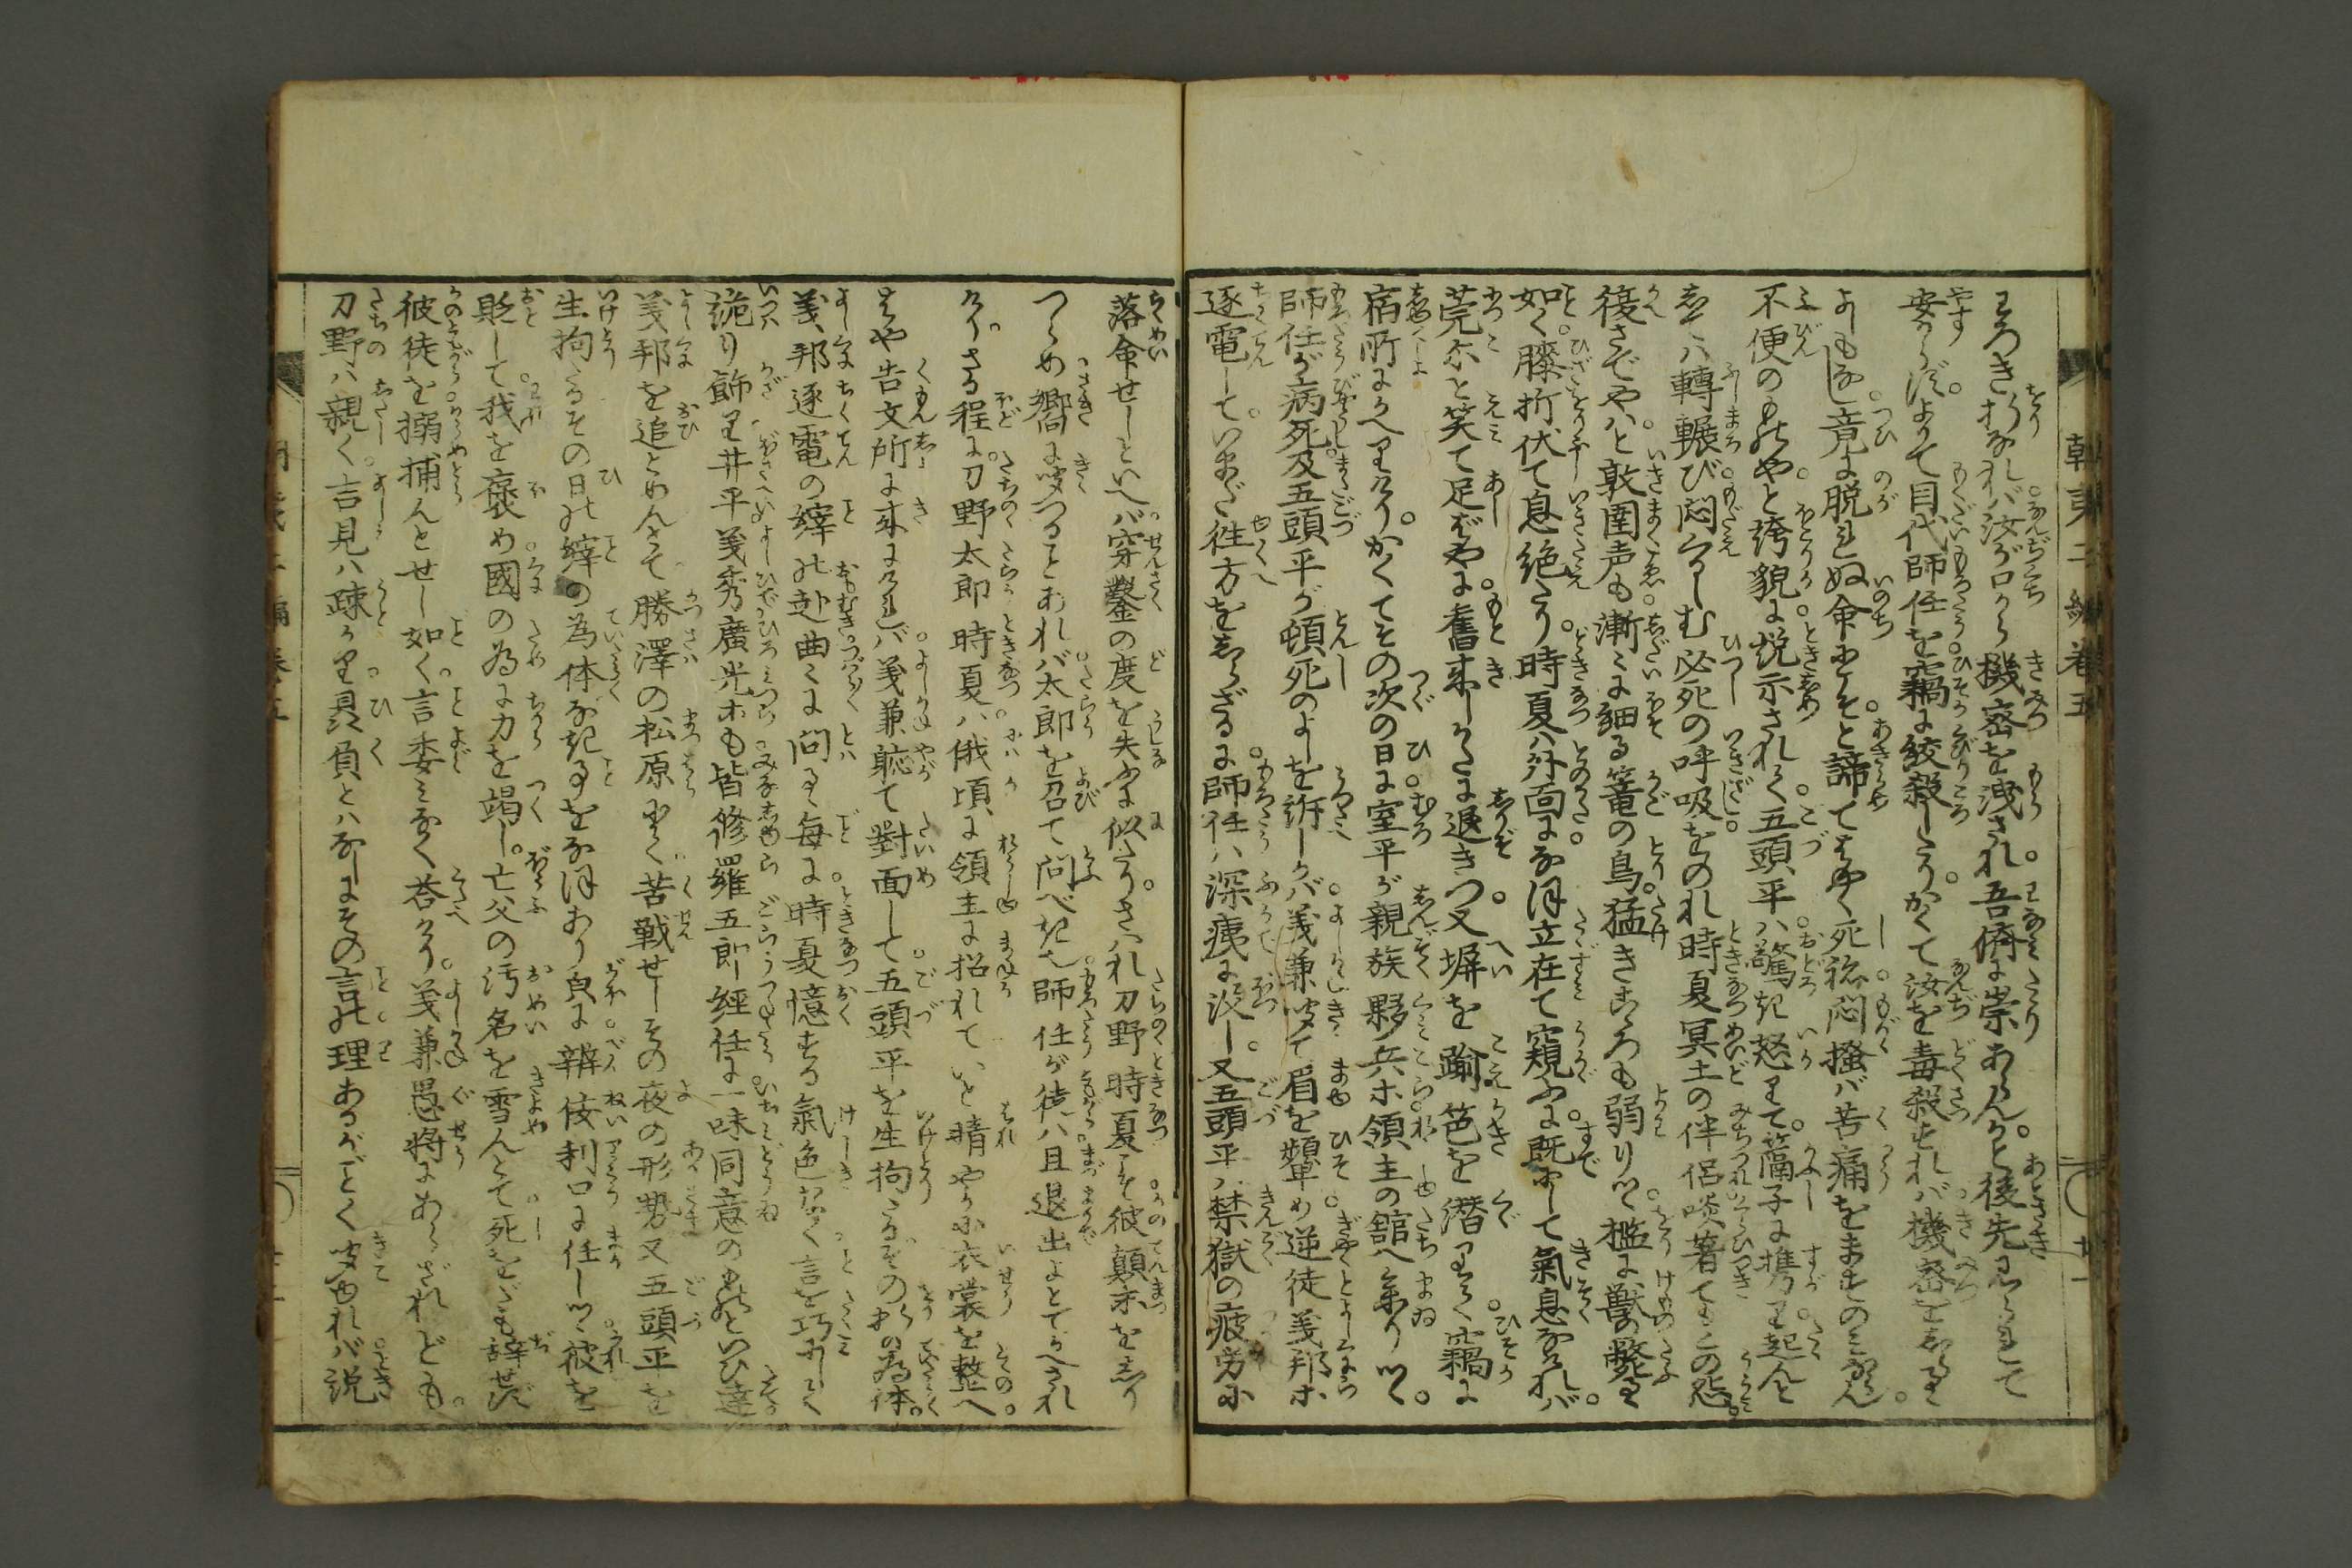 わろきものなれバ汝が口から機密を洩され吾儕に祟あらんかと後先見られて
安からず。よりて目代師任を竊に絞殺したり。かくて汝を毒殺すれバ機密をしる者
よもなし。竟に脱れぬ命ぞと諦てはやく死ね。悶掻バ苦痛をますのみならん
不便のものやと誇貌に説示されて五頭平ハ驚き怒りて篩子に携り起んと
しつゝ轉輾び悶くるしむ必死の呼吸をのれ時夏冥土の伴侶啖著てもこの怨
復さでやハと敦圉声も漸々に細る篭の鳥猛きこゝろも弱りつゝ檻に獣の斃る
如く膝折伏て息絶たり。時夏ハ外面になほ立在て窺ふに既にして氣息なけれバ
莞尓と笑て足ばやに舊来しかたに退きつ又塀を踰笆を潜りて竊に
宿所にかへりけり。かくてその次の日に室平が親族夥兵ホ領主の舘へ参りつゝ
師任が病死及五頭平が頓死のよしを訴しかバ義兼聴て眉を顰め逆徒義邦ホ
逐電して。いまだ往方をしらざるに師任ハ深痍に没し又五頭平ハ禁獄の疲労に
落命せしといへバ穿鑿の度を失ふに似たり。されバ刀野時夏こそ彼顛末をしり
つらめ嚮に聴つることあれバ太郎を召て問べき也師任が徒ハ且退出よとてかへされ
けり。さる程に刀野太郎時夏ハ俄頃に領主に招れていと晴やかに衣裳を整へ
はや告文所に来にけれバ義兼聴て對面して五頭平を生拘たるその折の為体。
義邦逐電の縡の赴曲々に問る毎に時夏憶する氣色なく言を巧にして
詭り飾り井平義秀廣光ホも皆修羅五郎經任に一味同意のものといひ達
義邦を追とめんとて勝澤の松原にて苦戰せしその夜の形勢又五頭平を
生拘たるその日の縡の為体なき事をなほあり㒵に辨侫利口に任しつゝ彼を
貶して我を褒め國の為に力を竭し。亡父の汚名を雪んとて死をだも辞せず
彼徒を搦捕んとせし如く言委ミなく荅けり。義兼愚将にあらざれども。
刀野ハ親く言見ハ疎かり具負とハなしにその言の理あるがごとく聴ゆれバ説